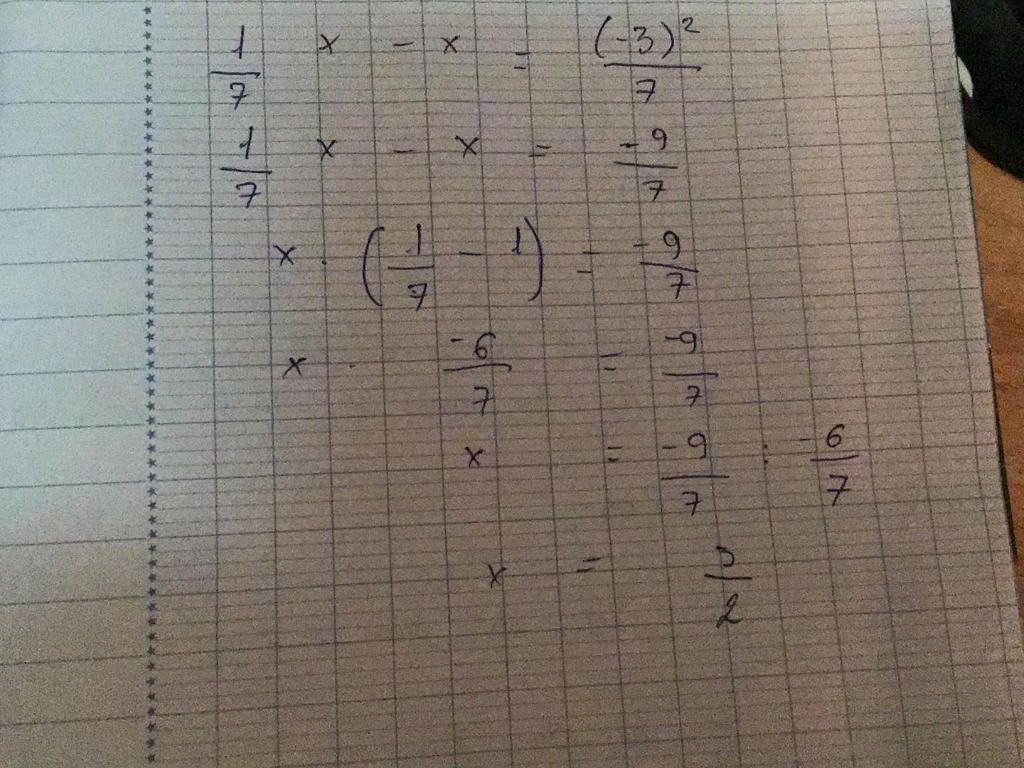 1/7 x - x = (-3)²/7
1/7 x - x = -9/7
x . (1/7 - 1) = -9/7
x . -6/7 = -9/7
x = -9/7 : -6/7
x = 3/2